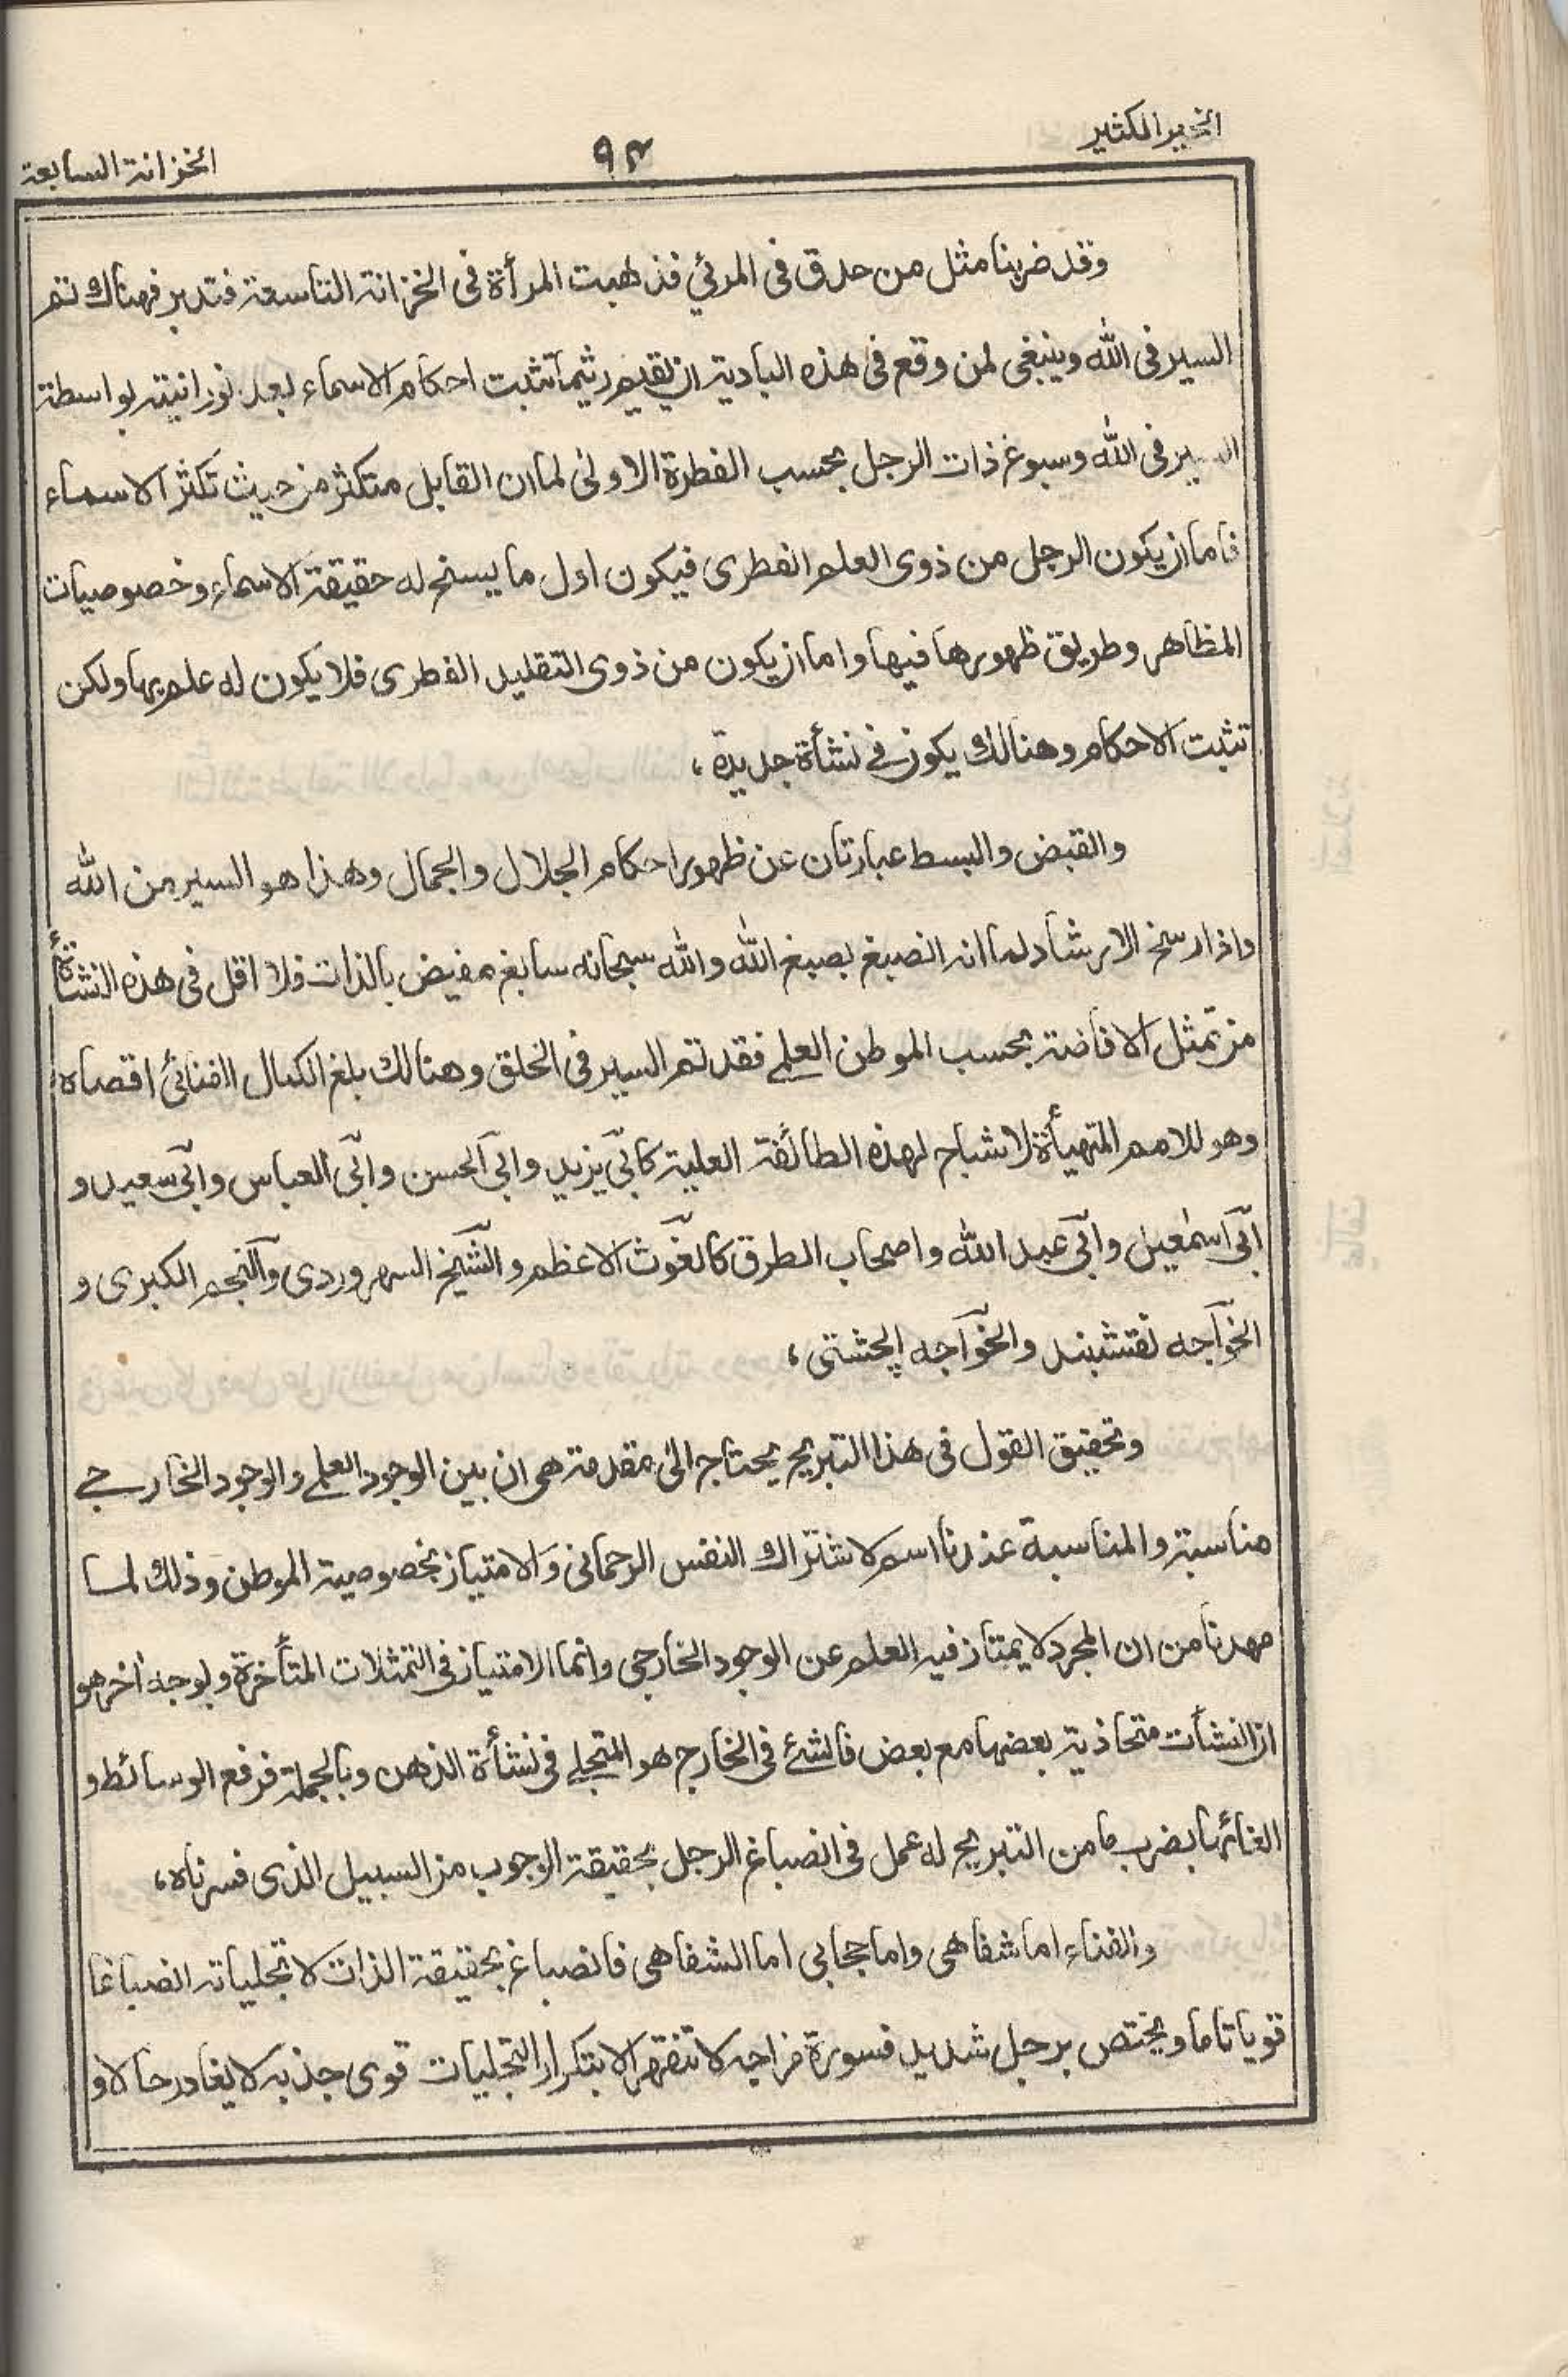 الخير الكثير
٩٣
الخزانة السابعة
وقد ضربنا مثل من حدق فى المرئي فذهبت المرأة فى الخزانة التاسعة فتدبر فهناك تم
السير فى الله وينبغى لمن وقع فى هذه البادية ان يقيم ريثما تثبت احكام الاسماء بعد نورانيته بواسطة
السير فى الله وسبوغ ذات الرجل بحسب الفطرة الاولى لما ان القابل متكثر من حيث تكثر الاسماء
فاما ان يكون الرجل من ذوى العلم الفطرى فيكون اول ما يسنح له حقيقة الاسماء وخصوصيات
المظاهر وطريق ظهورها فيها واما ان يكون من ذوى التقليد الفطرى فلا يكون له علم بها ولكن
تثبت الاحكام وهنالك يكون فى نشأة جديدة،
والقبض والبسط عبارتان عن ظهور احكام الجلال والجمال وهذا هو السير من الله
واذا رسخ الارشاد لما انه انصبغ بصبغ الله والله سبحانه سابغ مفيض بالذات فلا اقل فى هذه النشأة
من تمثل الافاضة بحسب الموطن العلمى فقد تم السير فى الخلق وهنالك بلغ الكمال الفنائى اقصاه
وهو للامم المتهيأة لاشباح لهذه الطائفة العلية كابى يزيد وابى الحسن وابى العباس وابى سعيد و
ابى اسمٰعيل وابى عبد الله واصحاب الطرق كالغوث الاعظم والشيخ السهروردى والنجم الكبرى و
الخواجه نقشبند والخواجه الچشتى،
وتحقيق القول فى هذا التبريح يحتاج الى مقدمة هى ان بين الوجود العلمى والوجود الخارجى
مناسبة والمناسبة عندنا اسم لاشتراك النفس الرحمانى والامتياز بخصوصية الموطن وذلك لما
مهدنا من ان المجرد لا يمتاز فيه العلم عن الوجود الخارجى وانما الامتياز فى التمثلات المتأخرة وبوجه اخر هو
ان النشأت متحاذية بعضها مع بعض فالشئ فى الخارج هو المتجلى فى نشأة الذهن وبالجملة فرفع الوسائط و
الغائها بضرب ما من التبريح له عمل فى انصباغ الرجل بحقيقة الوجوب من السبيل الذى فسرناه،
والفناء اما شفاهى واما حجابى اما الشفاهى فانصباغ بحقيقة الذات لا تجلياته انصباغا
قويا تاما ويختص برجل شديد فسورة مزاجه لا تنقهر الا بتكرار التجليات قوى جذبه لا يغادر حالا و